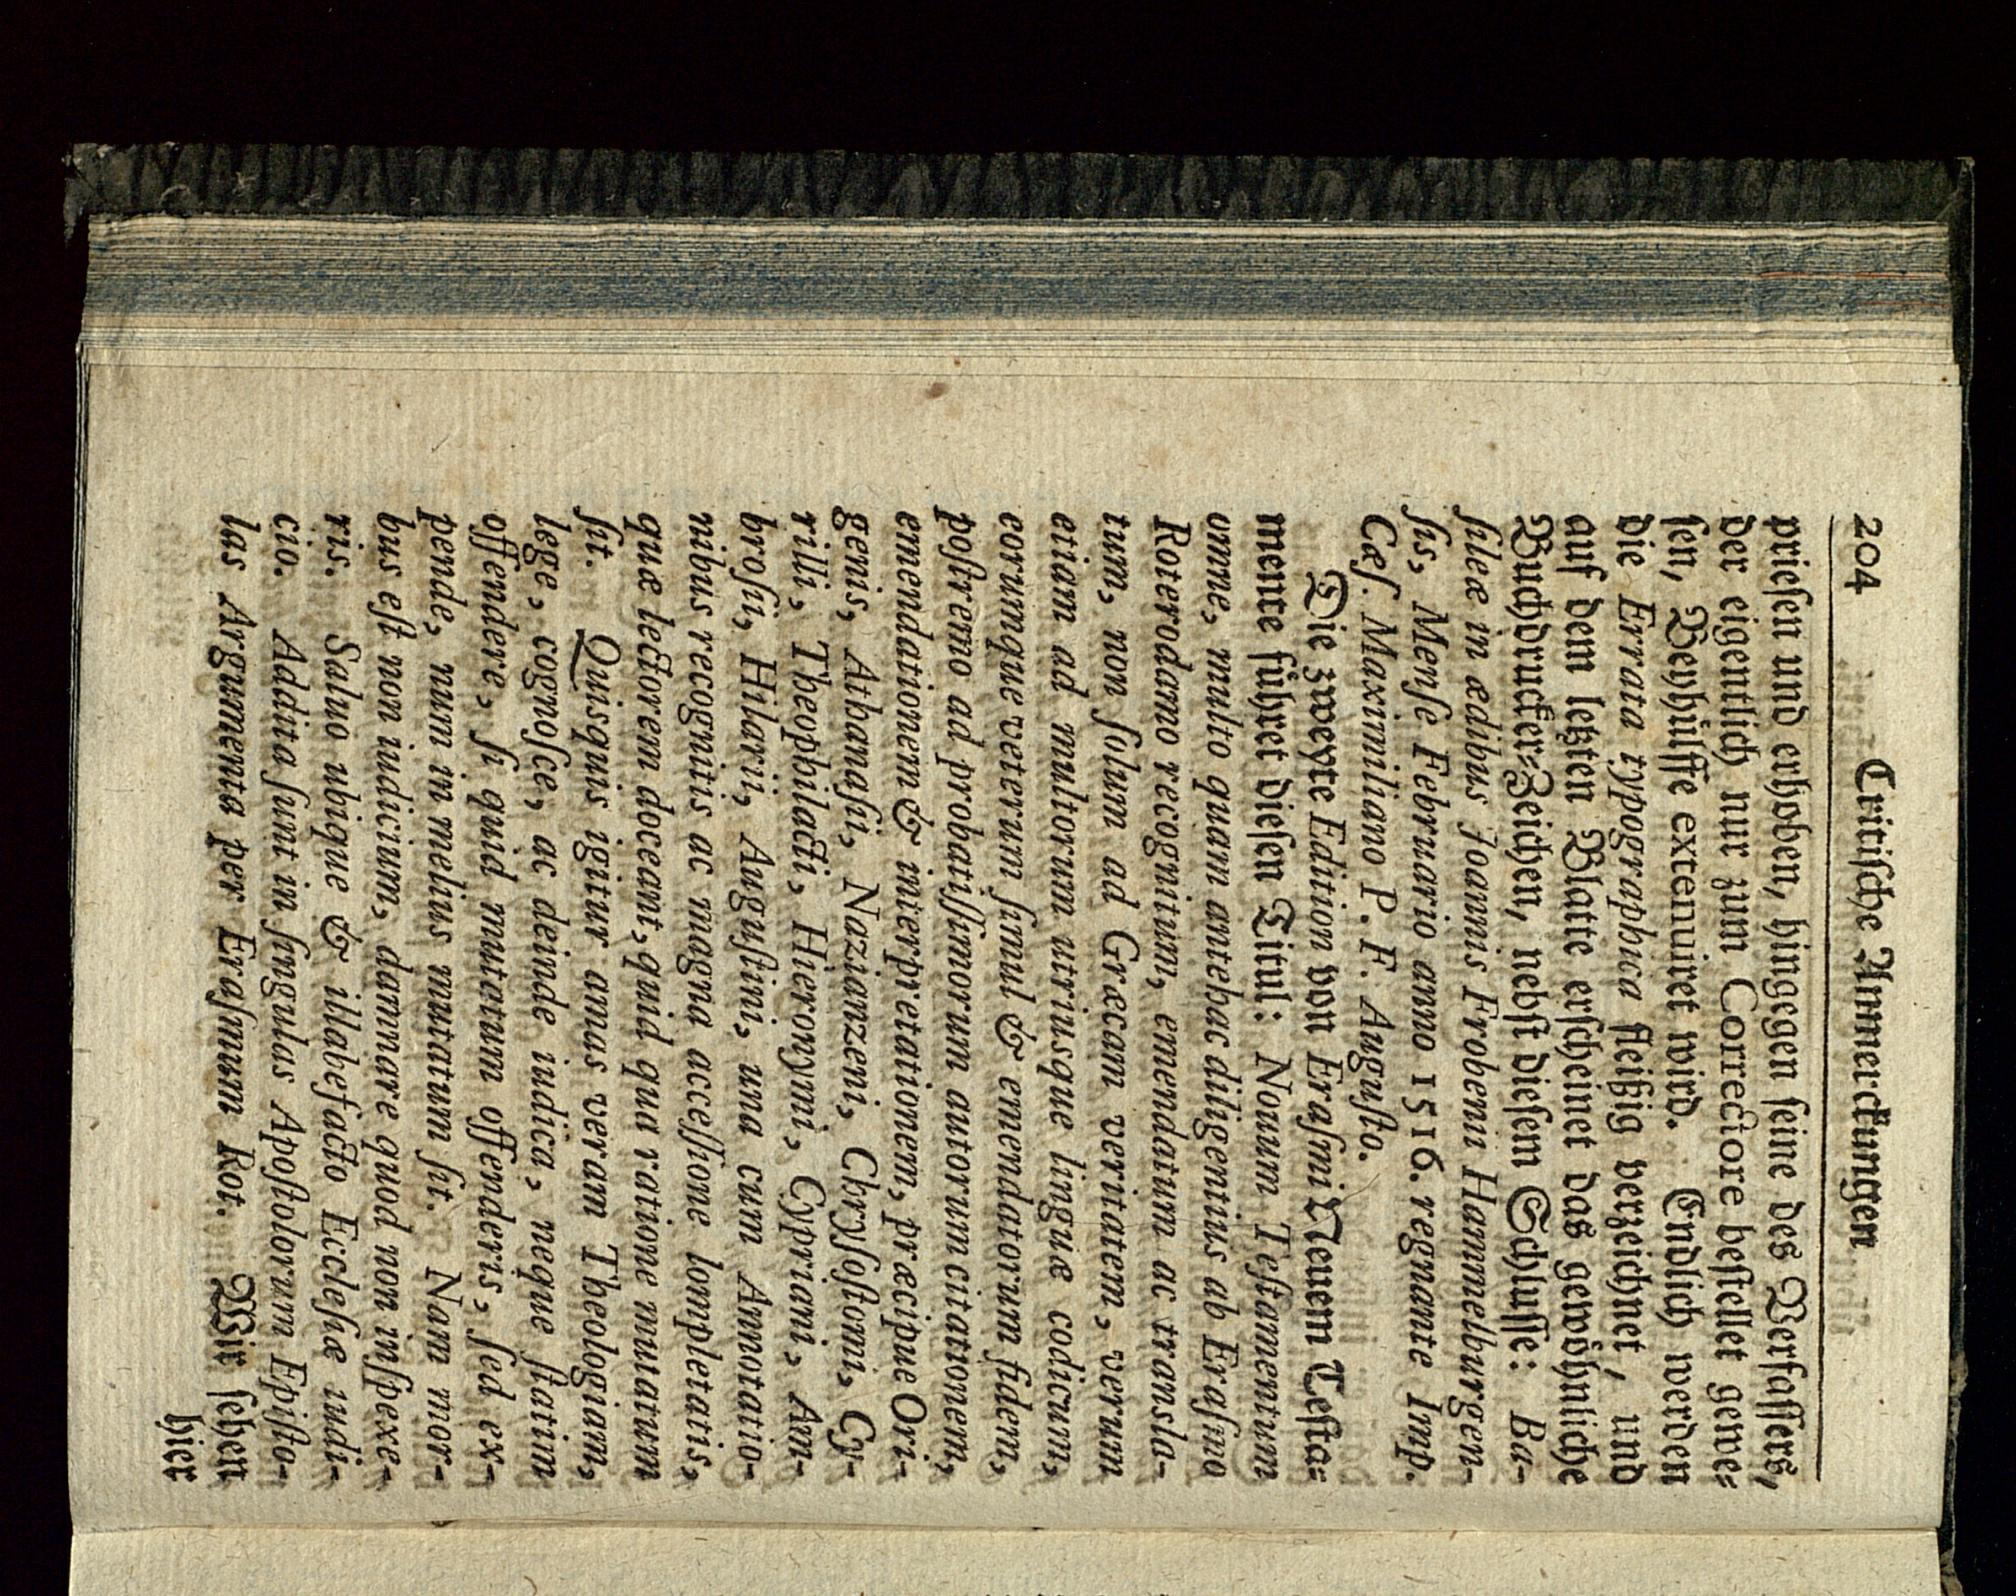 204 Critische Anmerckungen
priesen und erhoben, hingegen seine des Verfassers,
der eigentlich nur zum Correctore bestellet gewe-
sen, Beyhülffe extenuiret wird. Endlich werden
die Errata typographica fleißig verzeichnet, und
auf dem letzten Blatte erscheinet das gewöhnliche
Buchdrucker-Zeichen, nebst diesem Schlusse: Ba-
sileæ in ædibus Joannis Frobenii Hammelburgen-
sis, Mense Februario anno 1516. regnante Imp.
Cæs. Maximiliano P. F. Augusto.
Die zweyte Edition von Erasmi Neuem Testa-
mente führet diesen Titul: Nouum Testamentum
omne, multo quam antehac diligentius ab Erasmo
Roterodamo recognitum, emendatum ac transla-
tum, non solum ad Græcam veritatem, verum
etiam ad multorum utriusque linguæ codicum,
eorumque veterum simul & emendatorum fidem,
postremo ad probatissimorum autorum citationem,
emendationem & interpretationem, præcipue Ori-
genis, Athanasii, Nazianzeni, Chrysostomi, Cy-
rilli, Theophilacti, Hieronymi, Cypriani, Am-
brosii, Hilarii, Augustini, una cum Annotatio-
nibus recognitis ac magna accessione lompletatis,
quæ lectorem doceant, quid qua ratione mutatum
sit. Quisquis igitur amas veram Theologiam,
lege, cognosce, ac deinde iudica, neque statim
offendere, si quid mutatum offenderis, sed ex-
pende, num in melius mutatum sit. Nam mor-
bus est non iudicium, damnare quod non inspexe-
ris. Saluo ubique & illabefacto Ecclesiæ iudi-
cio. Addita sunt in singulas Apostolorum Episto-
las Argumenta per Erasmum Rot. Wir sehen
hier